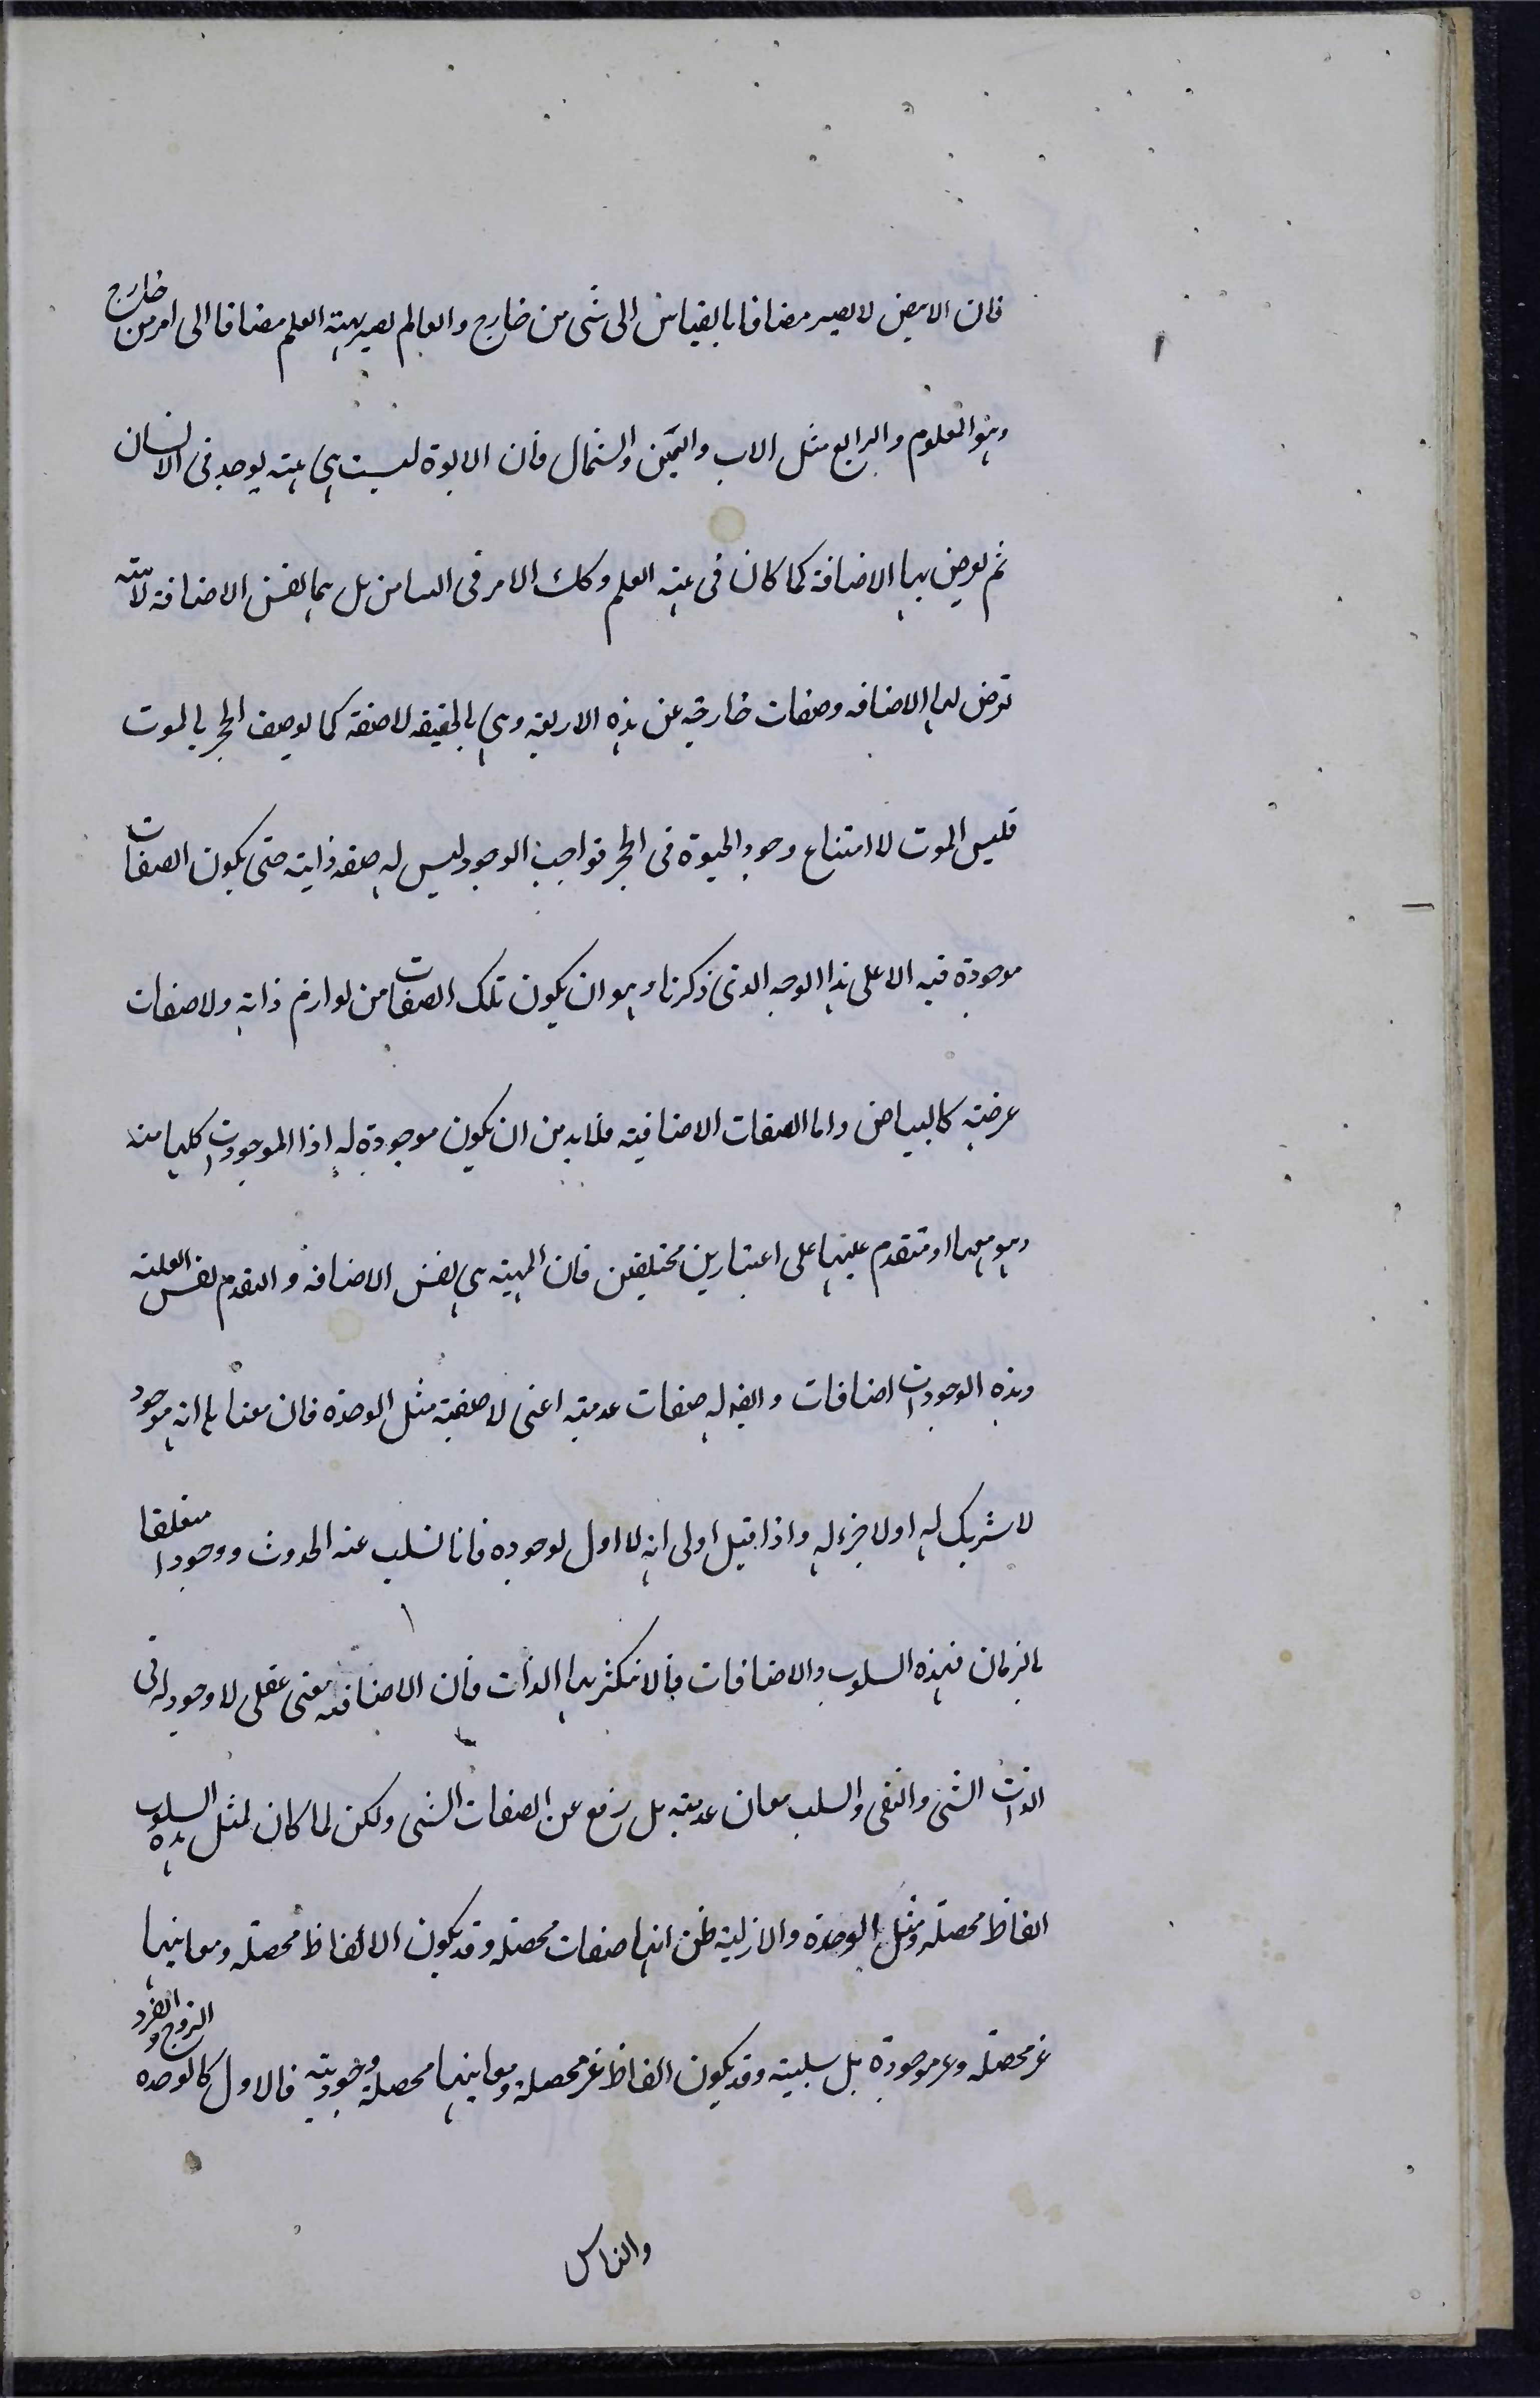 فان الابيض لا يصير مضافا بالقياس الى شى من خارج والعالم يصير بهيته العلم مضافا الى امر من خارج
وهو المعلوم والرابع مثل الاب واليمين والشمال فان الابوة ليست هى هيته يوجد فى الانسان
ثم يعرض بها الاضافة كما كان فى هيته العلم وكك الامر فى التيامن بل هما نفس الاضافة لا هيته
تعرض لها الاضافه وصفات خارجيه عن هذه الاربعة وهى بالحقيقه لا صفة كما يوصف الحجر بالموت
فليس الموت الا امتناع وجود الحيوة فى الحجر فواجب الوجود ليس له صفه ذاتيه حتى يكون الصفات
موجودة فيه الا على هذا الوجه الذى ذكرنا وهو ان يكون تلك الصفات من لوازم ذاته ولا صفات
عرضيه كالبياض واما الصفات الاضافيته فلابد من ان يكون موجودة له اذا الموجودات كلها منه
وهو معها او متقدم عليها على اعتبارين مختلفين فان المعيته هى نفس الاضافة والتقدم نفس العليته
وهذه الوجودات اضافات وايضا له صفات عدميته اعنى لا صفيته مثل الوحدة فان معناها انه موجود
لا شريك له او لا جزء له واذا قيل اولى انه لا اول لوجوده فانا نسلب عنه الحدوث ووجودا متعلقا
بالزمان فهذه السلوب والاضافات فلا تتكثر بها الذات فان الاضافته معنى عقلى لا وجود له فى
الذات الشى والنفى والسلب معان عدميته بل رفع عن الصفات الشى ولكن لما كان لمثل هذه السلوب
الفاظ محصله ومثل الوحدة والازليته ظن انها صفات محصله وقد يكون الالفاظ محصله ومعانيها
غير محصله وغير موجودة بل سلبيته وقد يكون الفاظ غير محصله ومعانيها محصلة وجوديته فالاول كالوحده الزوج والفرد
والناس